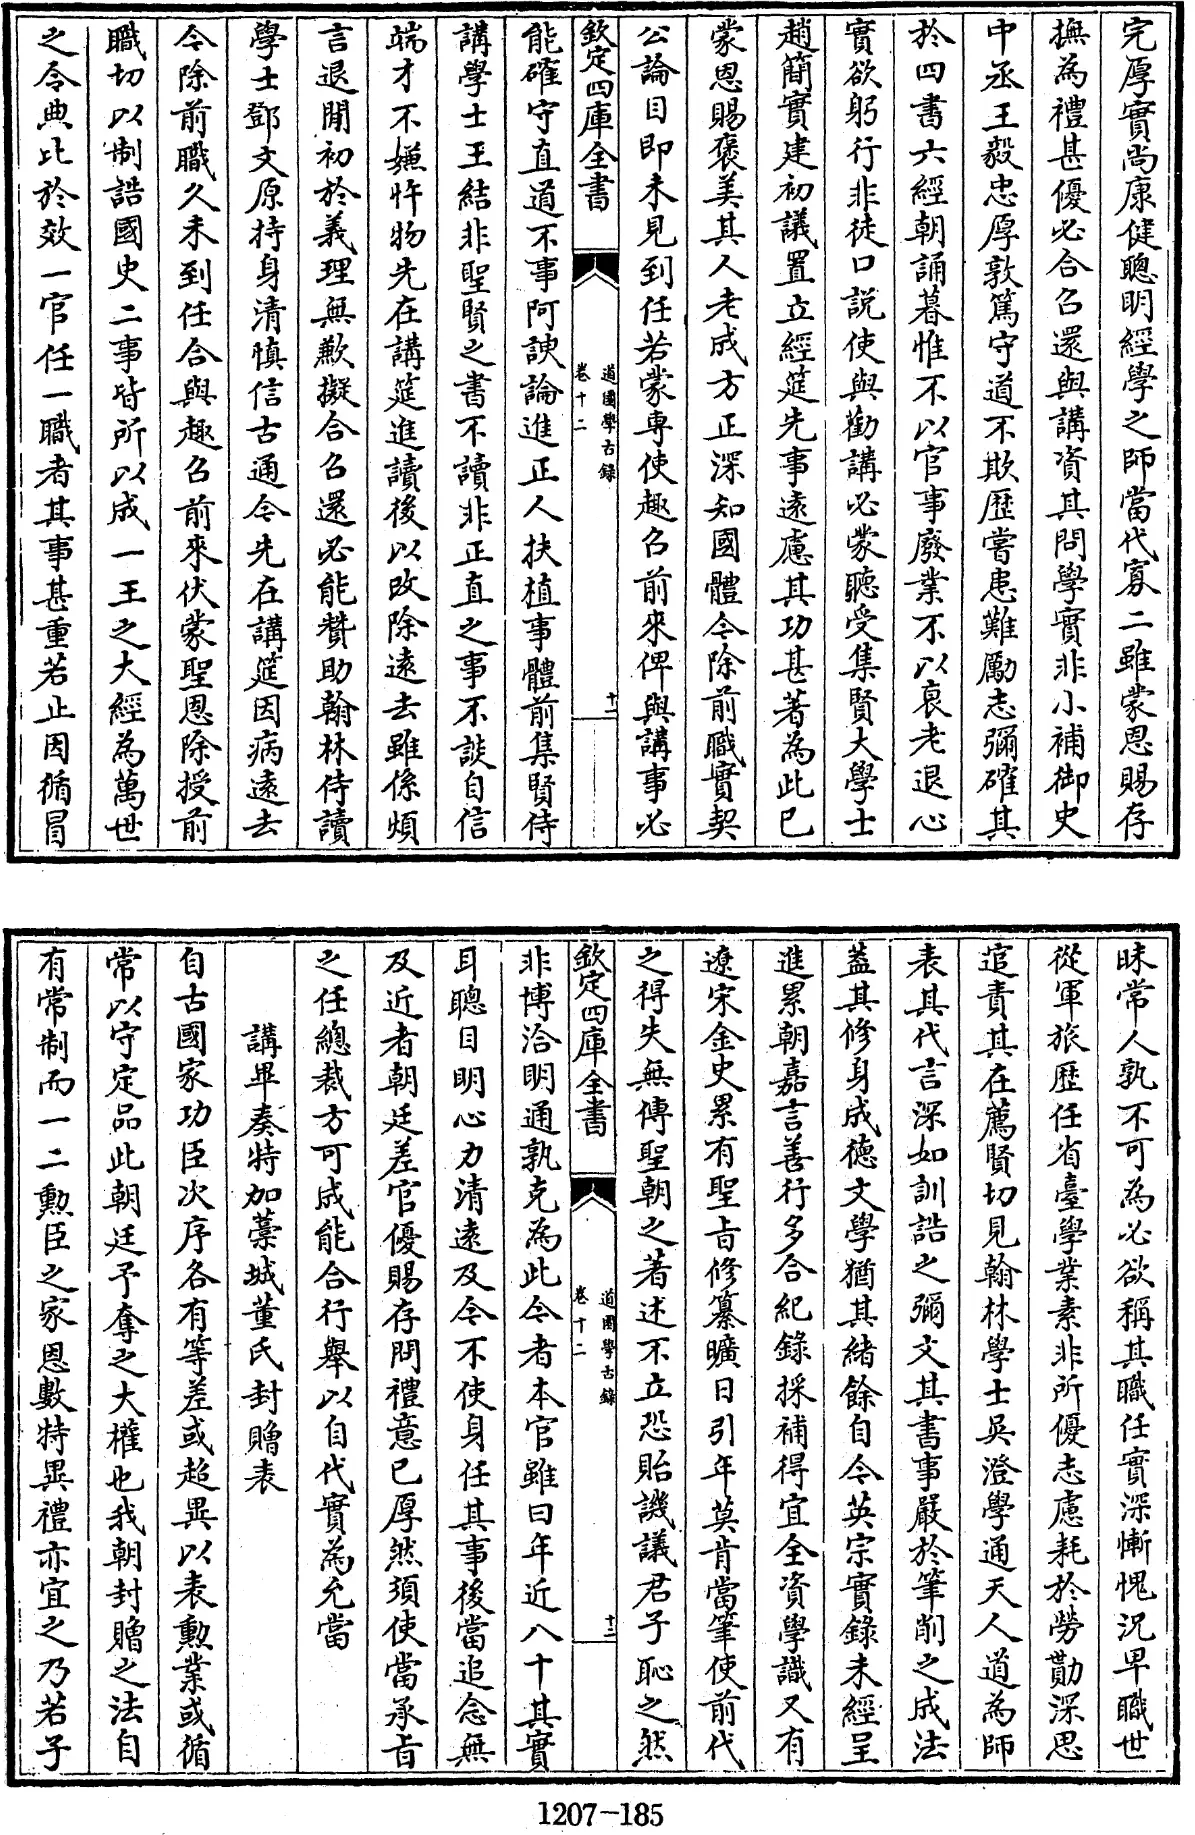 完厚實尚康健聰明經學之師當代寡二雖蒙恩賜存
撫為禮甚優必合召還與講資其問學實非小補御史
中丞王毅忠厚敦篤守道不欺歴嘗患難厲志彌確其
於四書六經朝誦暮惟不以官事廢業不以衰老退心
實欲躬行非徒口説使與勸講必蒙聽受集賢大學士
趙簡實建初議置立經筵先事遠慮其功甚著為此已
蒙恩賜褒美其人老成方正深知國體今除前職實契
公論目即未見到任若蒙專使趣召前來俾與講事必
欽定四庫全書
道園學古錄
卷十二
十
能確守直道不事阿諛論進正人扶植事體前集賢侍
講學士王結非聖賢之書不讀非正直之事不談自信
端才不嫌忤物先在講筵進讀後以改除遠去雖係煩
言退閒初於義理無歉擬合召還必能贊助翰林侍讀
學士鄧文原持身清慎信古通今先在講筵因病遠去
今除前職久未到任合與趣召前來伏蒙聖恩除授前
職切以制誥國史二事皆所以成一王之大經為萬世
之令典比於效一官任一職者其事甚重若止因循冒
昧常人孰不可為必欲稱其職任實深慚愧況早職世
從軍旅歴任省臺學業素非所優志慮耗於勞勩深思
逭責其在薦賢切見翰林學士吳澄學通天人道為師
表其代言深如訓誥之彌文其書事嚴於筆削之成法
蓋其修身成德文學猶其緒餘自今英宗實錄未經呈
進累朝嘉言善行多合紀錄採補得宜全資學識又有
遼宋金史累有聖旨修纂曠日引年莫肯當筆使前代
之得失無傳聖朝之著述不立恐貽譏議君子恥之然
欽定四庫全書
道園學古錄
卷十二
十一
非博洽明通孰克為此今者本官雖曰年近八十其實
耳聰目明心力清遠及今不使身任其事後當追念無
及近者朝廷差官優賜存問禮意已厚然須使當承旨
之任總裁方可成能合行舉以自代實為允當
講畢奏特加藁城董氏封贈表
自古國家功臣次序各有等差或超異以表勲業或循
常以守定品此朝廷予奪之大權也我朝封贈之法自
有常制而一二勲臣之家恩數特異禮亦宜之乃若子
1207-185